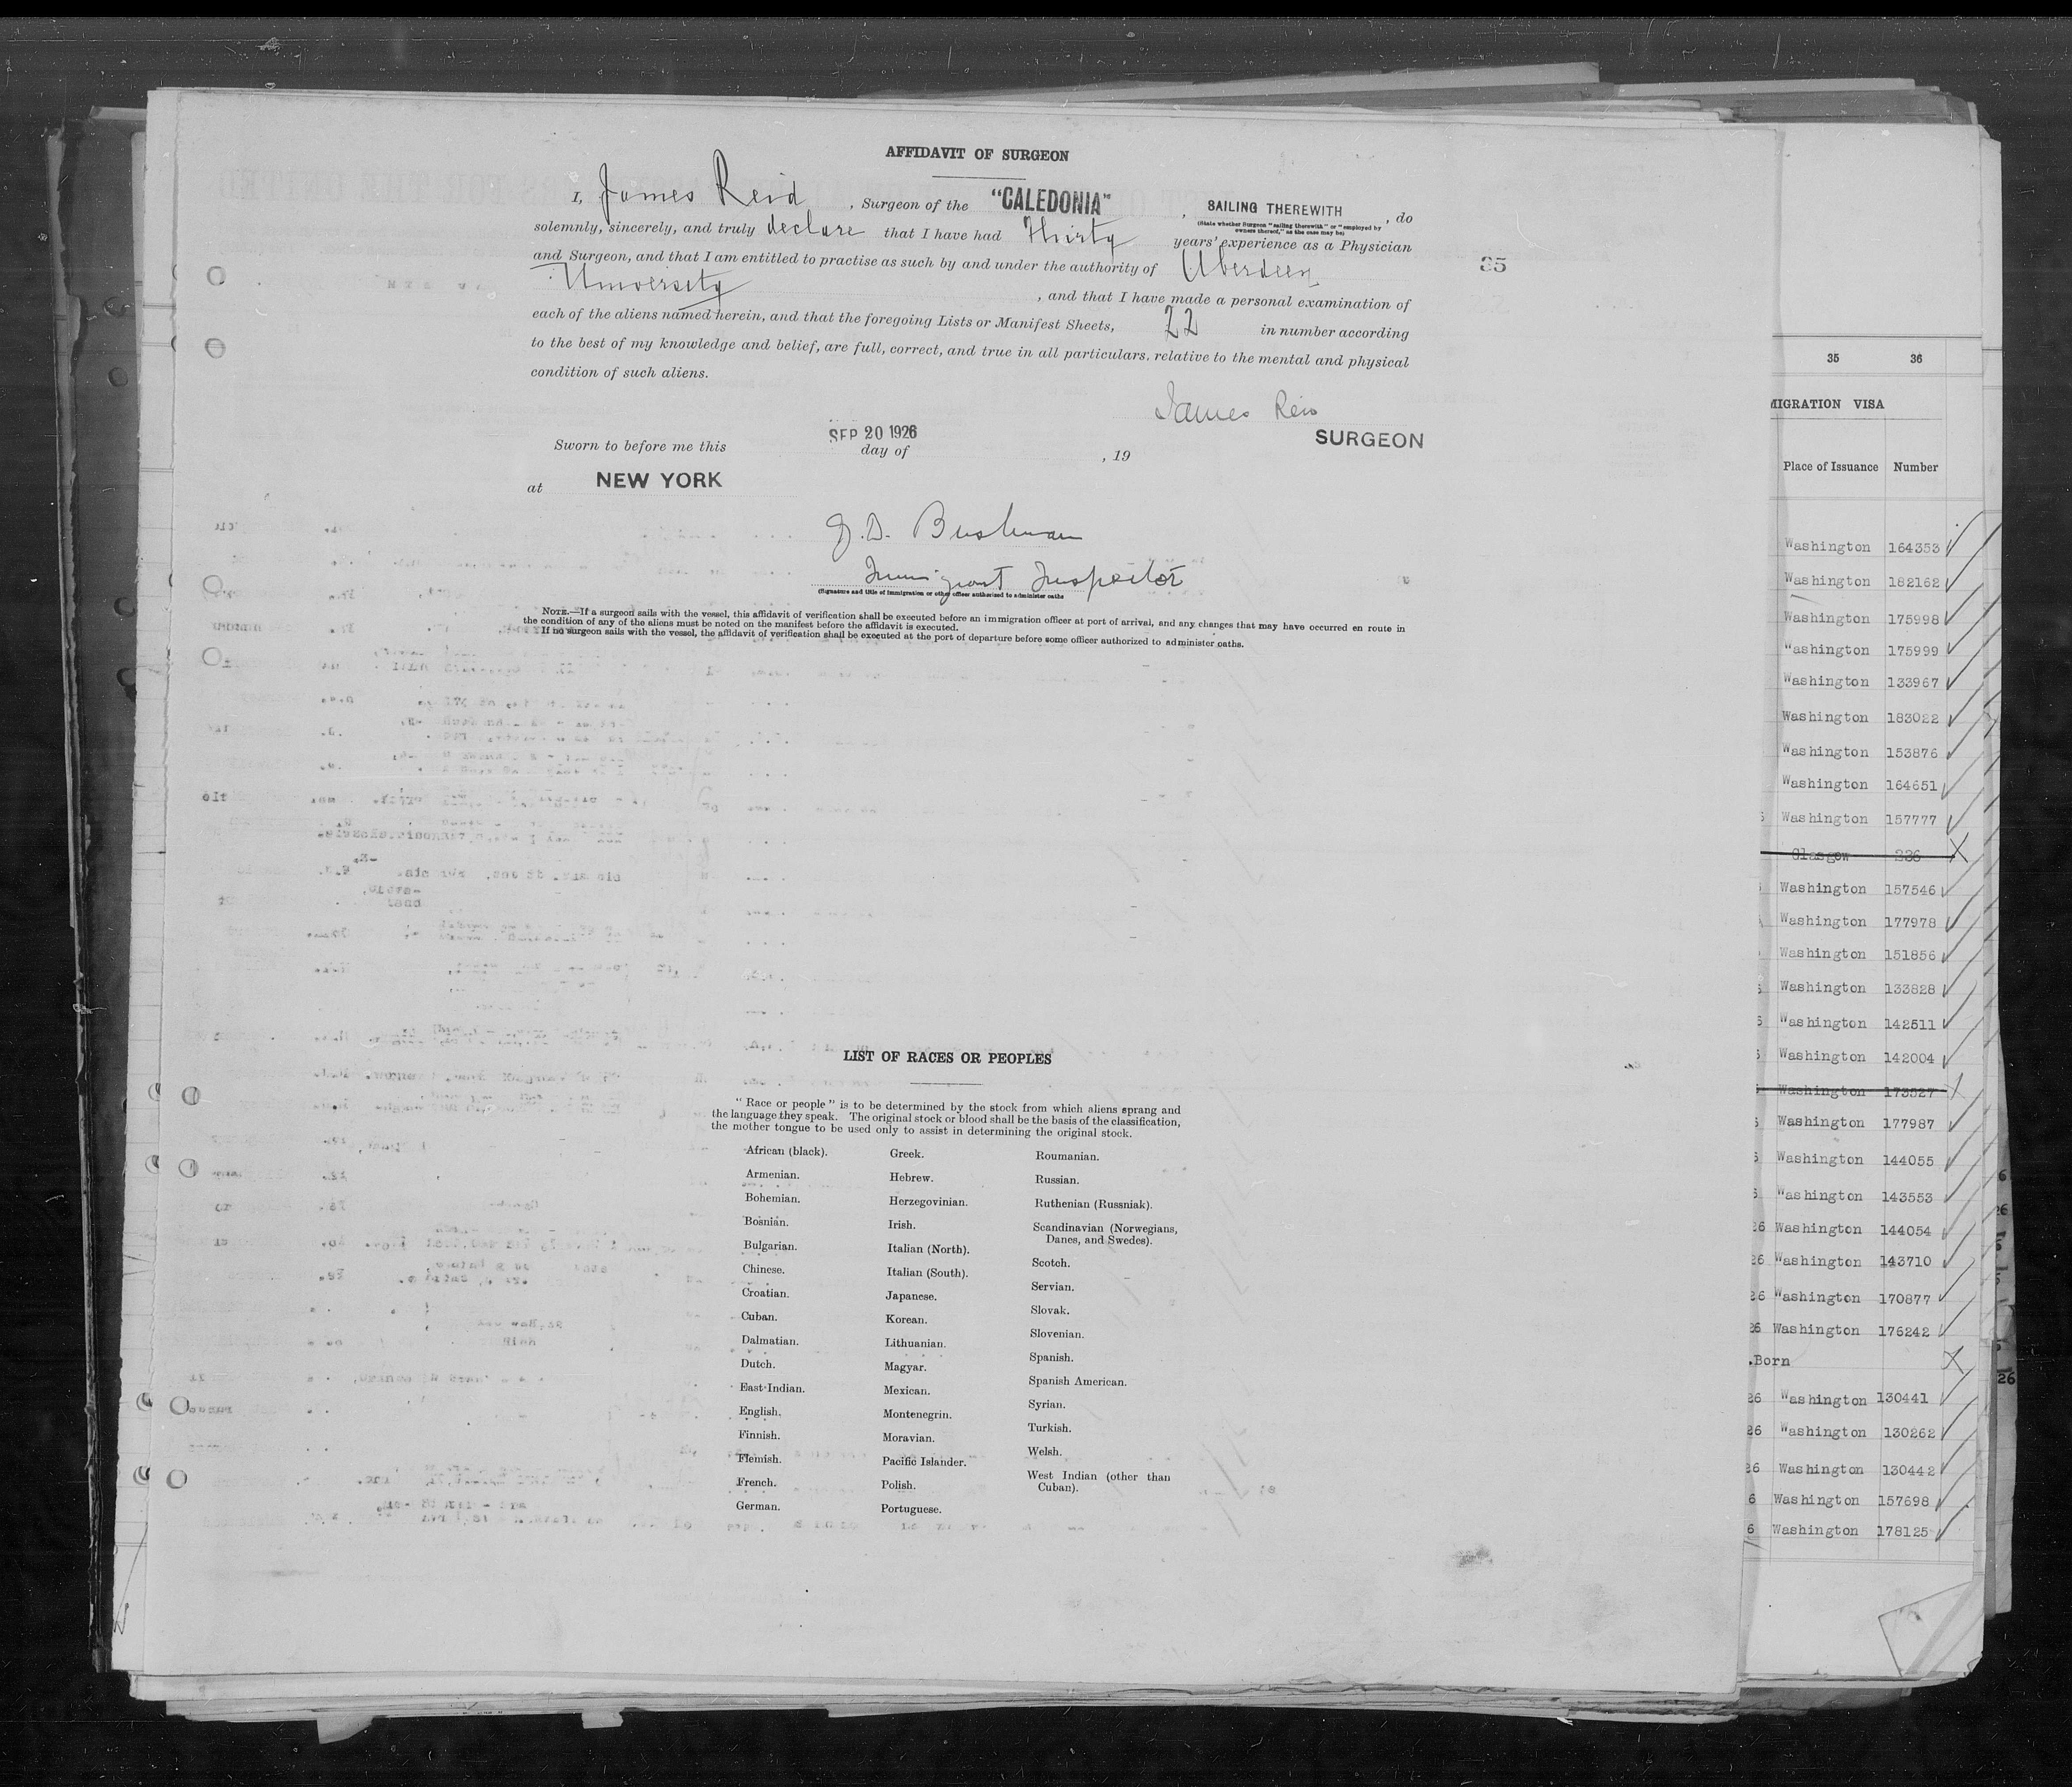 AFFIDAVIT OF SURGEON
I, James Reid, Surgeon of the "CALEDONIA", SAILING THEREWITH, do
(State whether Surgeon "sailing therewith" or "employed by
owners thereof," as the case may be)
solemnly, sincerely, and truly declare that I have had Thirty years' experience as a Physician
and Surgeon, and that I am entitled to practise as such by and under the authority of Aberdeen
University, and that I have made a personal examination of
each of the aliens named herein, and that the foregoing Lists or Manifest Sheets, 22 in number according
to the best of my knowledge and belief, are full, correct, and true in all particulars, relative to the mental and physical
condition of such aliens.
35
James Reid
SURGEON
SEP 20 1926
Sworn to before me this day of , 19
at NEW YORK
J. D. Bushman
Immigrant Inspector
(Signature and title of immigration or other officer authorized to administer oaths
NOTE.—If a surgeon sails with the vessel, this affidavit of verification shall be executed before an immigration officer at port of arrival, and any changes that may have occurred en route in
the condition of any of the aliens must be noted on the manifest before the affidavit is executed.
If no surgeon sails with the vessel, the affidavit of verification shall be executed at the port of departure before some officer authorized to administer oaths.
LIST OF RACES OR PEOPLES
"Race or people" is to be determined by the stock from which aliens sprang and
the language they speak. The original stock or blood shall be the basis of the classification,
the mother tongue to be used only to assist in determining the original stock.
African (black).
Armenian.
Bohemian.
Bosnian.
Bulgarian.
Chinese.
Croatian.
Cuban.
Dalmatian.
Dutch.
East Indian.
English.
Finnish.
Flemish.
French.
German.
Greek.
Hebrew.
Herzegovinian.
Irish.
Italian (North).
Italian (South).
Japanese.
Korean.
Lithuanian.
Magyar.
Mexican.
Montenegrin.
Moravian.
Pacific Islander.
Polish.
Portuguese.
Roumanian.
Russian.
Ruthenian (Russniak).
Scandinavian (Norwegians,
Danes, and Swedes).
Scotch.
Servian.
Slovak.
Slovenian.
Spanish.
Spanish American.
Syrian.
Turkish.
Welsh.
West Indian (other than
Cuban).
35 36
MIGRATION VISA
Place of Issuance Number
Washington 164353
Washington 182162
Washington 175998
Washington 175999
Washington 133967
Washington 183022
Washington 153876
Washington 164651
Washington 157777
Glasgow 236
Washington 157546
Washington 177978
Washington 151856
Washington 133828
Washington 142511
Washington 142004
Washington 173527
Washington 177987
Washington 144055
Washington 143553
26 Washington 144054
26 Washington 143710
26 Washington 170877
26 Washington 176242
.Born
26 Washington 130441
26 Washington 130262
26 Washington 130442
6 Washington 157698
6 Washington 178125